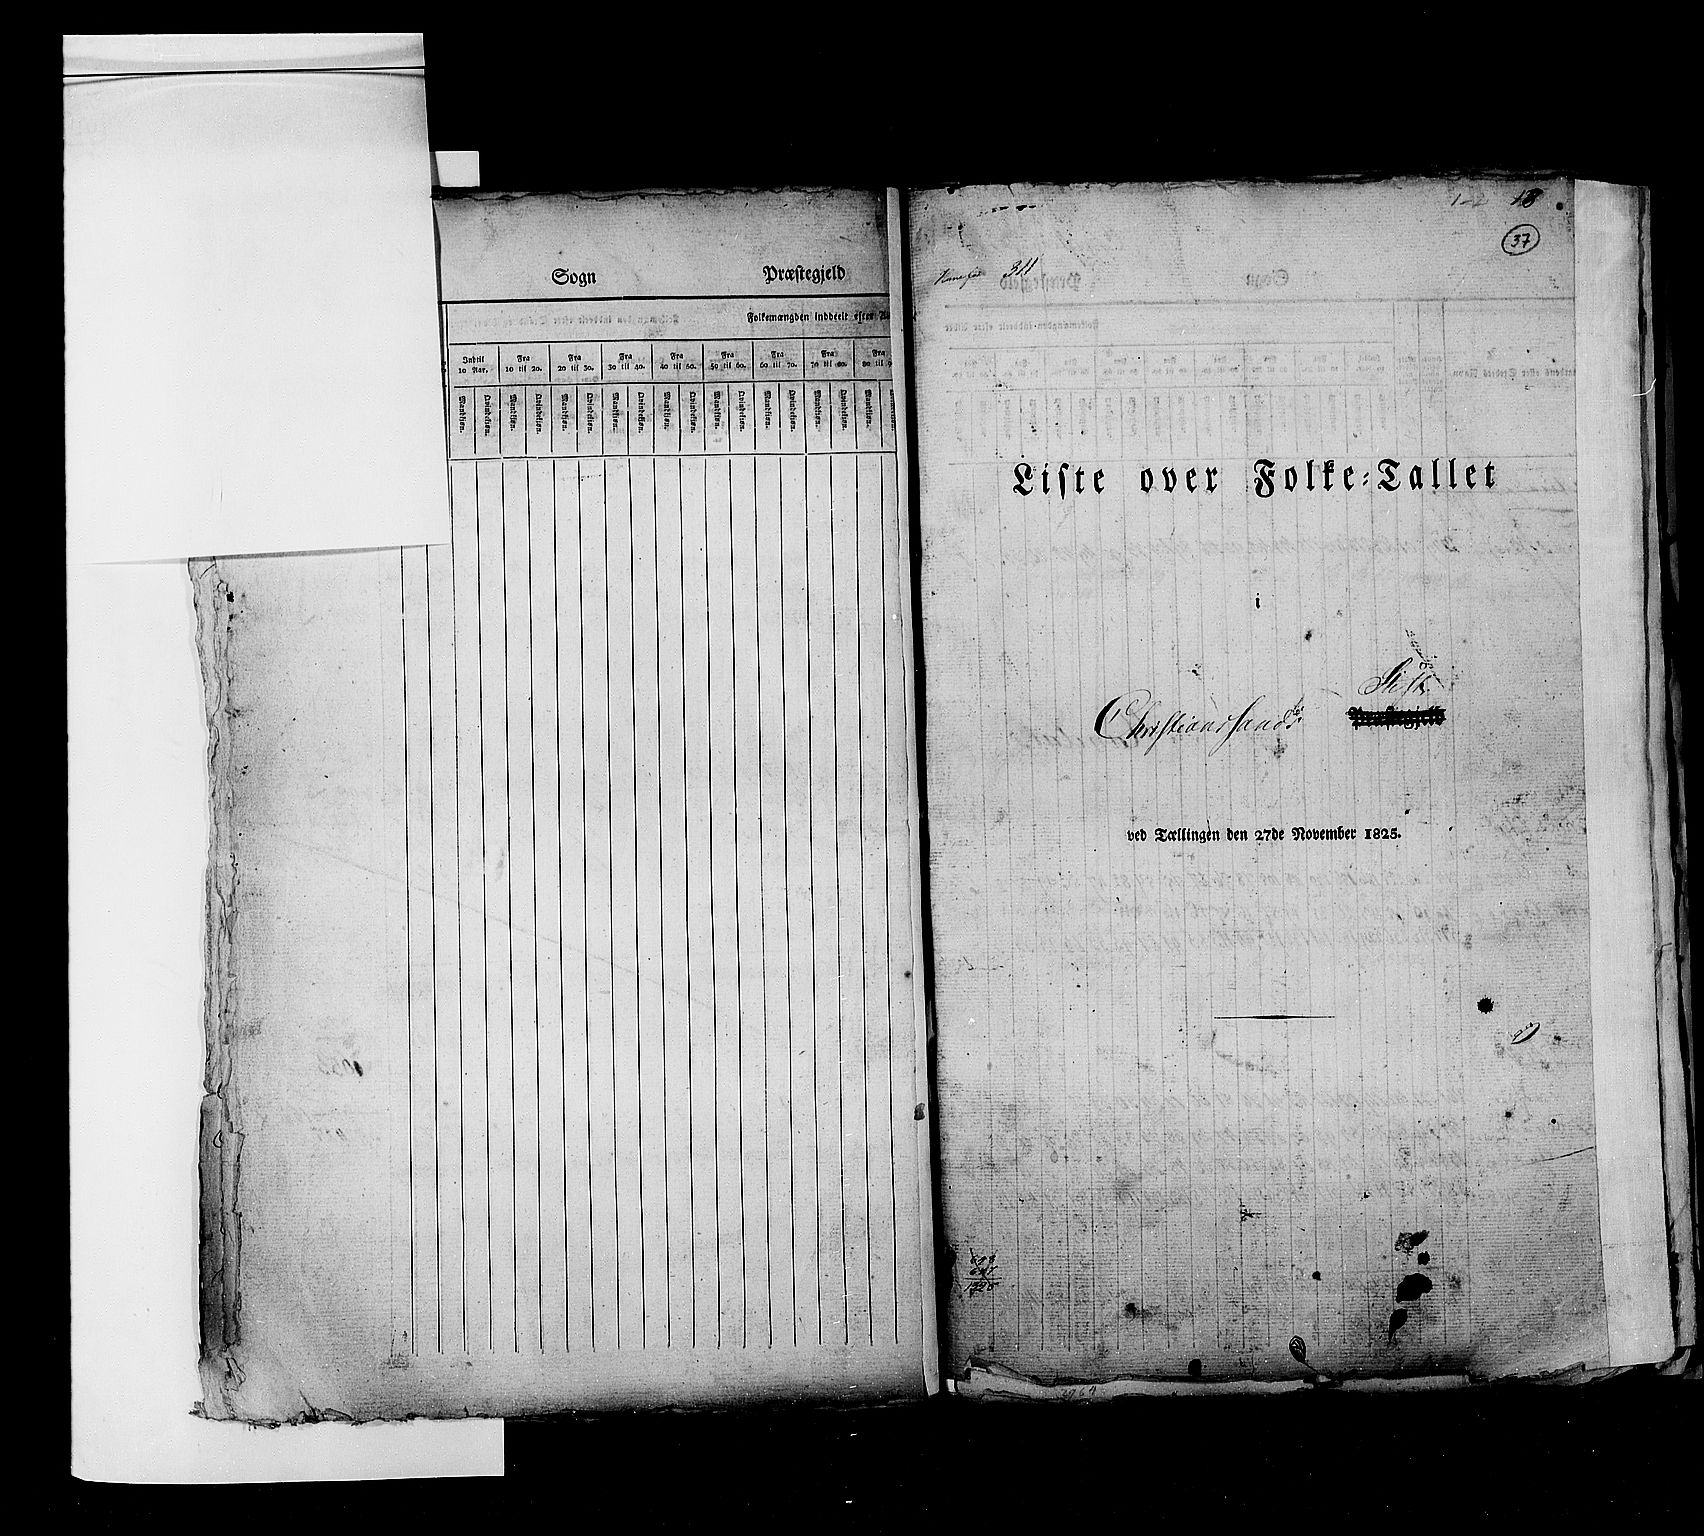 Sogn Præstegjeld
Folkemængden inddeelt efter
Indtil 10 Aar. Fra 10 til 20. Fra 20 til 30. Fra 30 til 40. Fra 40 til 50. Fra 50 til 60. Fra 60 til 70. Fra 70 til 80. Fra 80 til
Mandkiøn. Qvindekiøn. Mandkiøn. Qvindekiøn. Mandkiøn. Qvindekiøn. Mandkiøn. Qvindekiøn. Mandkiøn. Qvindekiøn. Mandkiøn. Qvindekiøn. Mandkiøn. Qvindekiøn. Mandkiøn. Qvindekiøn. Mandkiøn.
18
37
Liste over Folke-Tallet
i
Stift
Christianssands Præstegjeld
ved Tællingen den 27de November 1825.